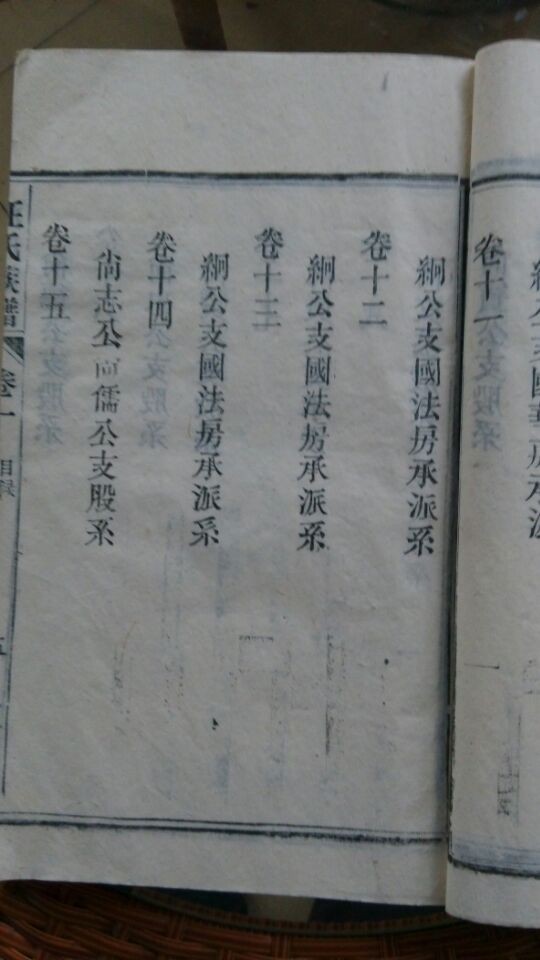 卷十一
絅公支國法房承派系
卷十二
絅公支國法房承派系
卷十三
絅公支國法房承派系
卷十四
尙志公尙儒公支股系
卷十五
汪氏族譜
卷一
目錄
五